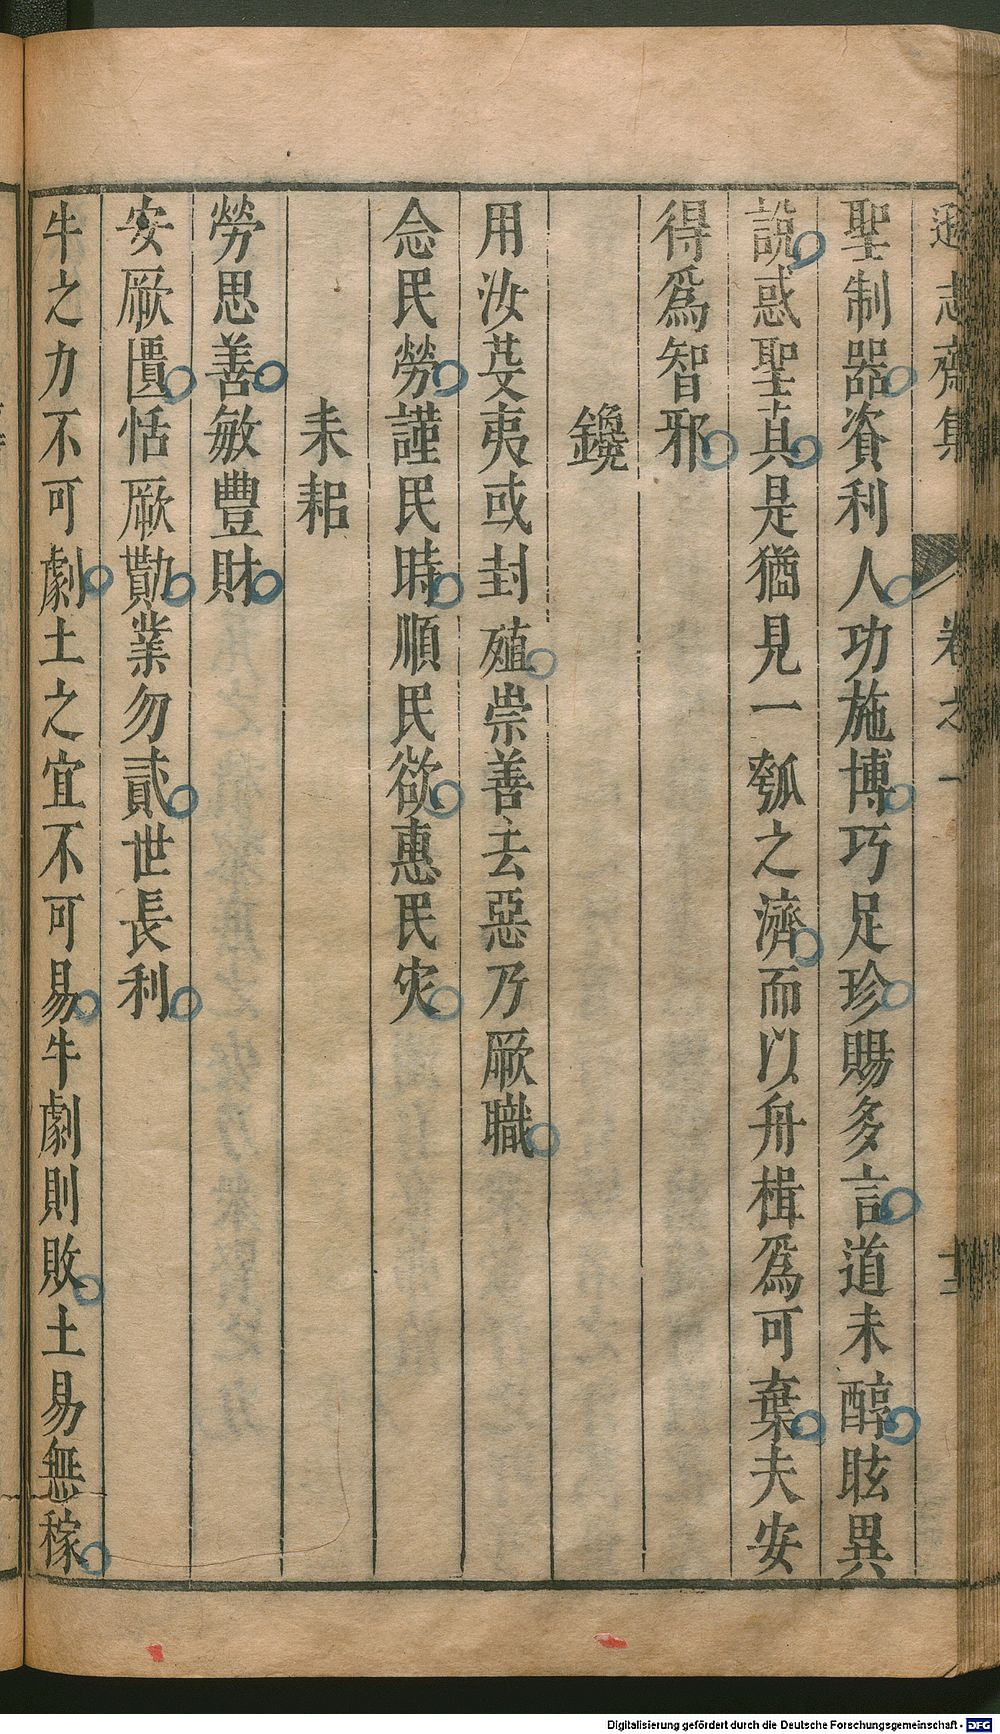 遜志齋集 卷之一 十二
聖制器資利人功施博巧足珍賜多言道未醇眩異
說惑聖真是猶見一瓠之濟而以舟楫為可棄夫安
得為智邪
鑱
用汝芟夷或封殖崇善去惡乃厥職
念民勞謹民時順民欲惠民灾
耒耜
勞思善敏豐財
安厥匱恬厥勩業勿貳世長利
牛之力不可劇土之宜不可易牛劇則敗土易無稼
Digitalisierung gefördert durch die Deutsche Forschungsgemeinschaft - DFG